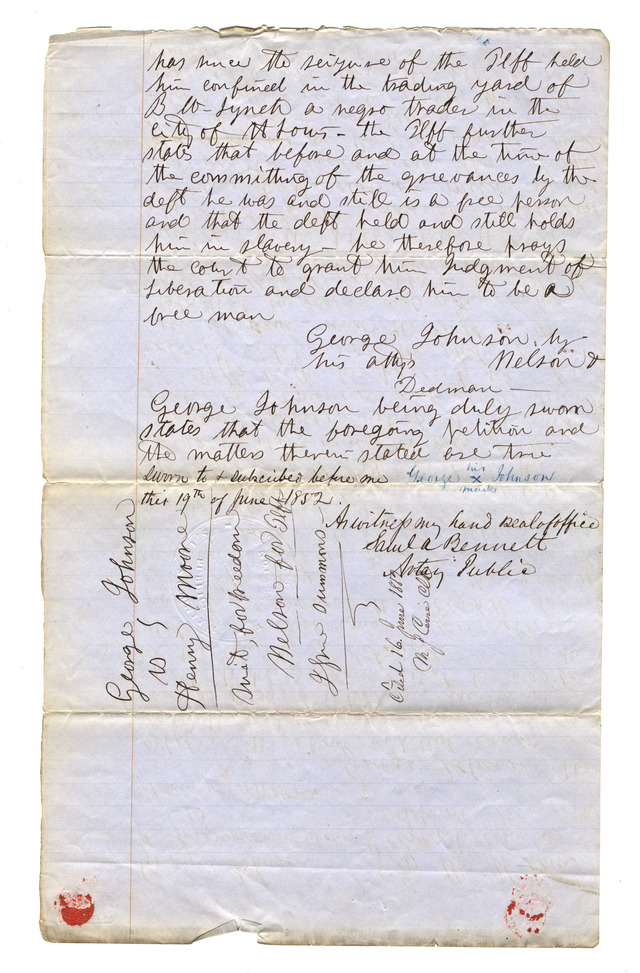 has since the seizure of the Plff held
him confined in the trading yard of
B M Lynch a negro trader in the
city of St Louis - the Plff further
states that before and at the time of
the committing of the grievances by the
deft he was and still is a free person
and that the deft held and still holds
him in slavery - he therefore prays
the court to grant him Judgment of
Liberation and declare him to be a
free man
George Johnson by
his attys Nelson &
Dedman —
George Johnson being duly sworn
states that the foregoing petition and
the matters therein stated are true
Sworn to & subscribed before me
George his x mark Johnson
this 19th of June 1852.
As witness my hand & seal of office
Saml A Bennett
Notary Public
George Johnson
vs
Henry Moore
Suit for freedom
Nelson for Plff
Issue summons
Filed 16 June 1852